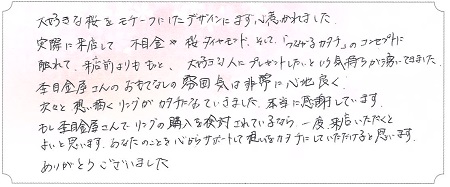 大好きな桜をモチーフにしたデザインにまず心惹かれました。
実際に来店して 木目金や桜ダイヤモンド、そして「つながるカタチ」のコンセプトに
触れて、来店前よりももっと、大好きな人にプレゼントしたいという気持ちが高いてきました。
杢目金屋さんのおもてなしの雰囲気は非常に心地良く、
次々と想い描くリングがカタチなっていきました。本当に感謝しています。
もし杢目金屋さんでリングの購入を検討されているなら、一度来店いただくと
よいと思います。あなたのことを心からサポートして想いをカタチにしていただけると思います。
ありがとうございました